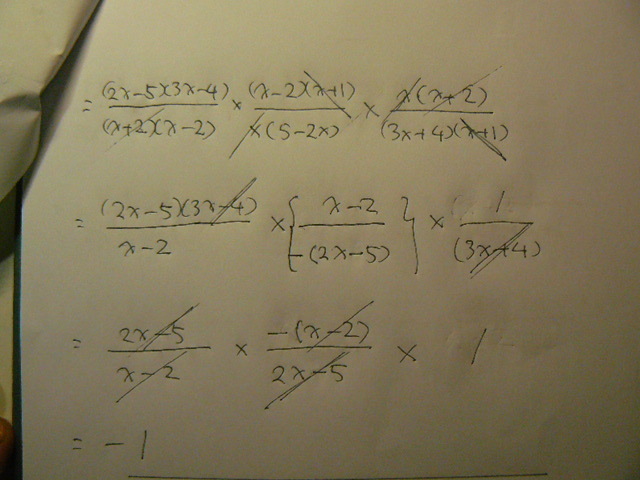 = (2x-5)(3x-4)/(x+2)(x-2) × (x-2)(x+1)/x(5-2x) × x(x+2)/(3x+4)(x+1)
= (2x-5)(3x-4)/x-2 × { x-2/-(2x-5) } × 1/(3x+4)
= 2x-5/x-2 × -(x-2)/2x-5 × 1
= -1